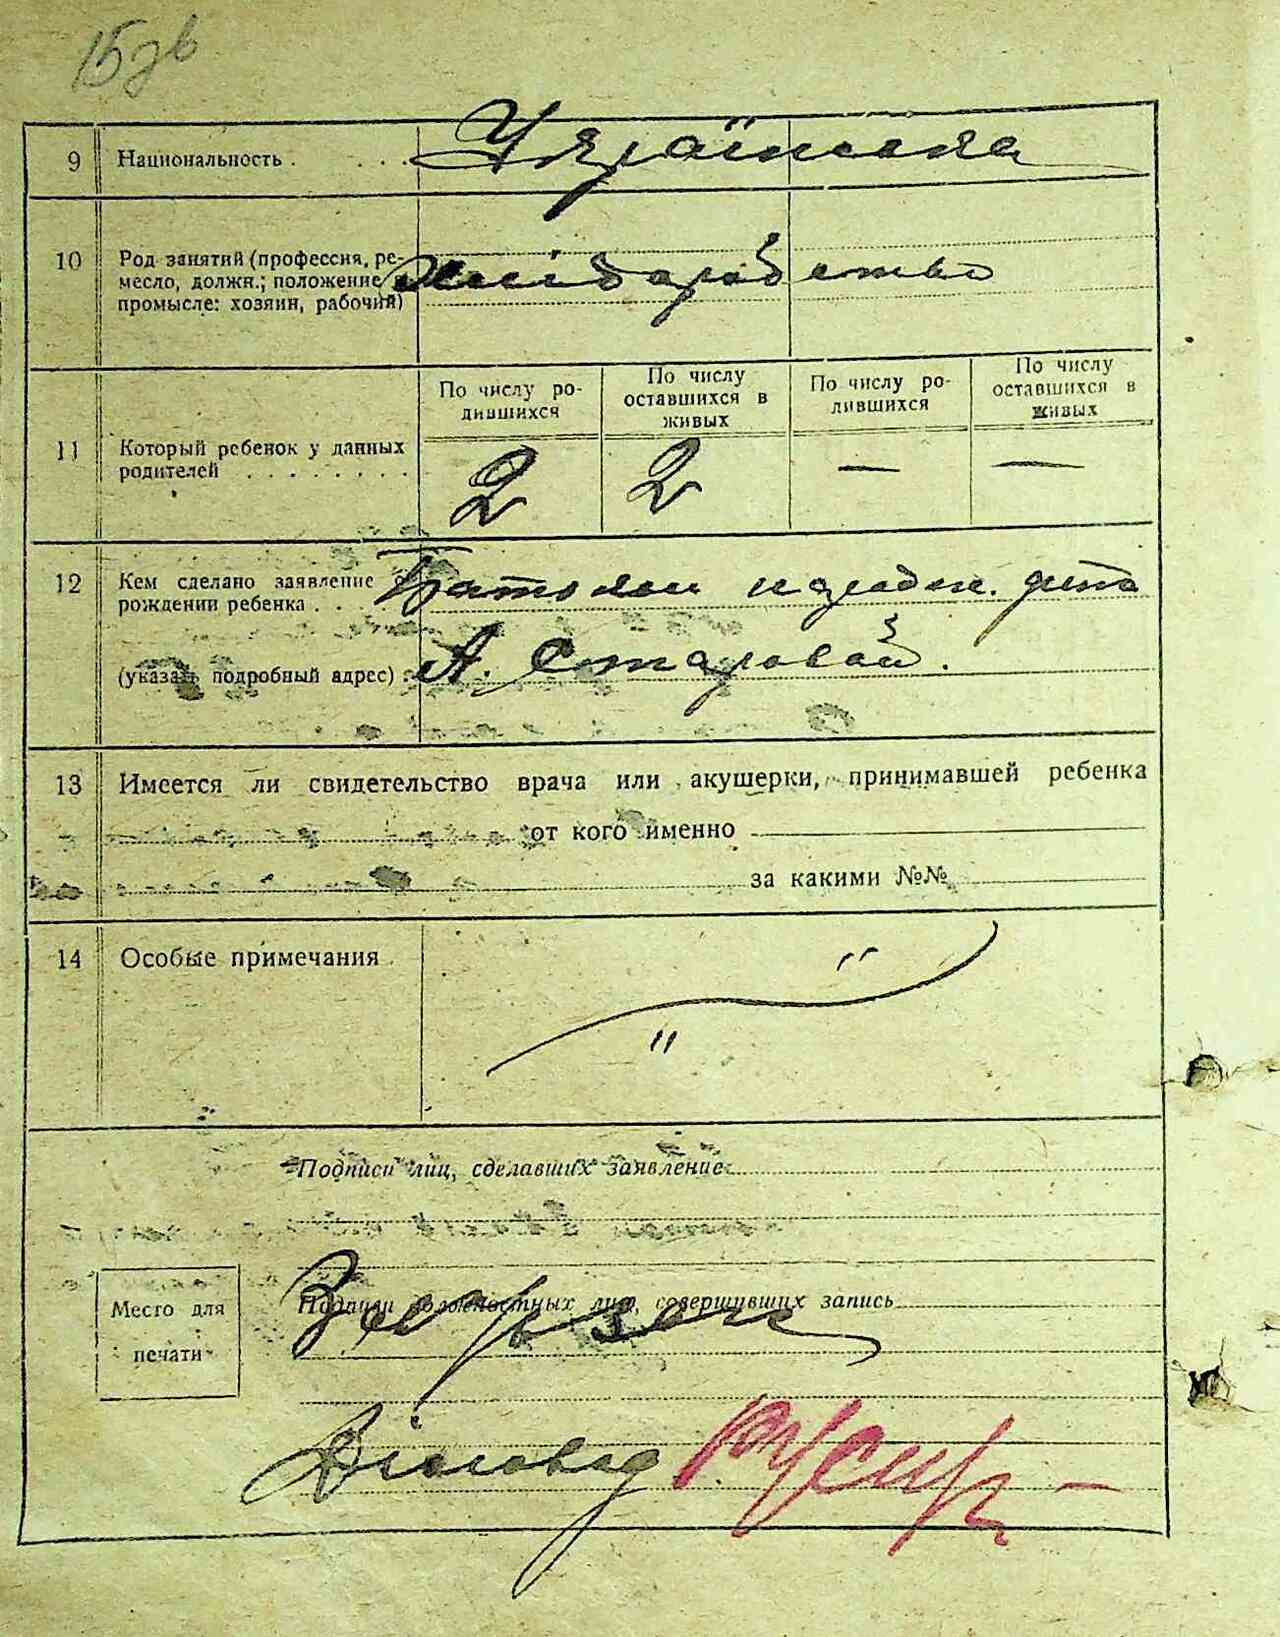 15 зв
9 Национальность . . . . Українська
10 Род занятий (профессия, ре-
месло, должн.; положение в
промысле: хозяин, рабочий)
хліборобство
По числу ро-
дившихся
По числу
оставшихся в
живых
По числу ро-
дившихся
По числу
оставшихся в
живых
11 Который ребенок у данных
родителей . . . . . . . .
2 2 — —
12 Кем сделано заявление о
рождении ребенка . . .
Батьком дит.
(указать подробный адрес) .
А. Старовой.
13 Имеется ли свидетельство врача или акушерки, принимавшей ребенка
от кого именно
за какими №№
14 Особые примечания .
" "
Подписи лиц, сделавших заявление
Подписи должностных лиц, совершивших запись
Место для
печати
Діловод